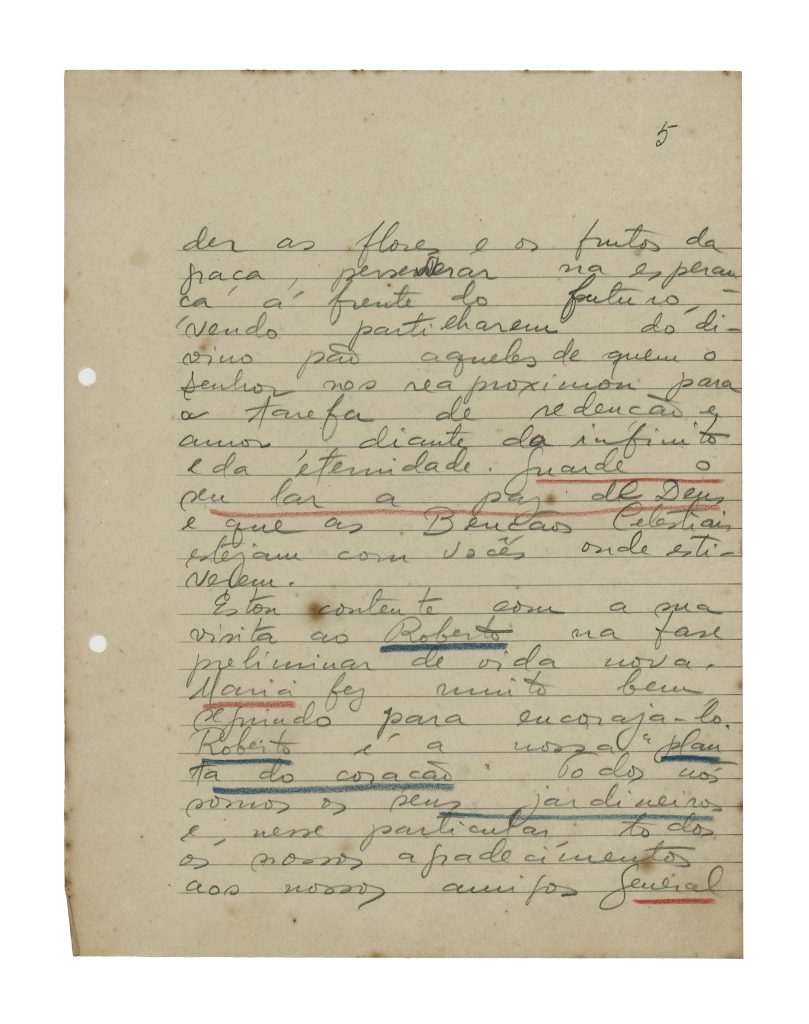 5
der as flores e os frutos da
graça, perseverar na esperan
ça á frente do futuro, -
vendo partilharem do di-
vino pão aqueles de quem o
Senhor nos reaproximou para
a tarefa de redenção e,
amor diante do infinito
e da eternidade. Guarde o
seu lar a paz de Deus
e que as Bençãos Celestiais
estejam com vocês onde esti-
verem.
Estou contente com a sua
visita ao Roberto na fase
preliminar de vida nova.
Maria fez muito bem,
seguindo para encoraja-lo.
Roberto é a nossa "plan
ta do coração" Todos nós
somos os seus jardineiros
e, nesse particular todos
os nossos agradecimentos
aos nossos amigos General